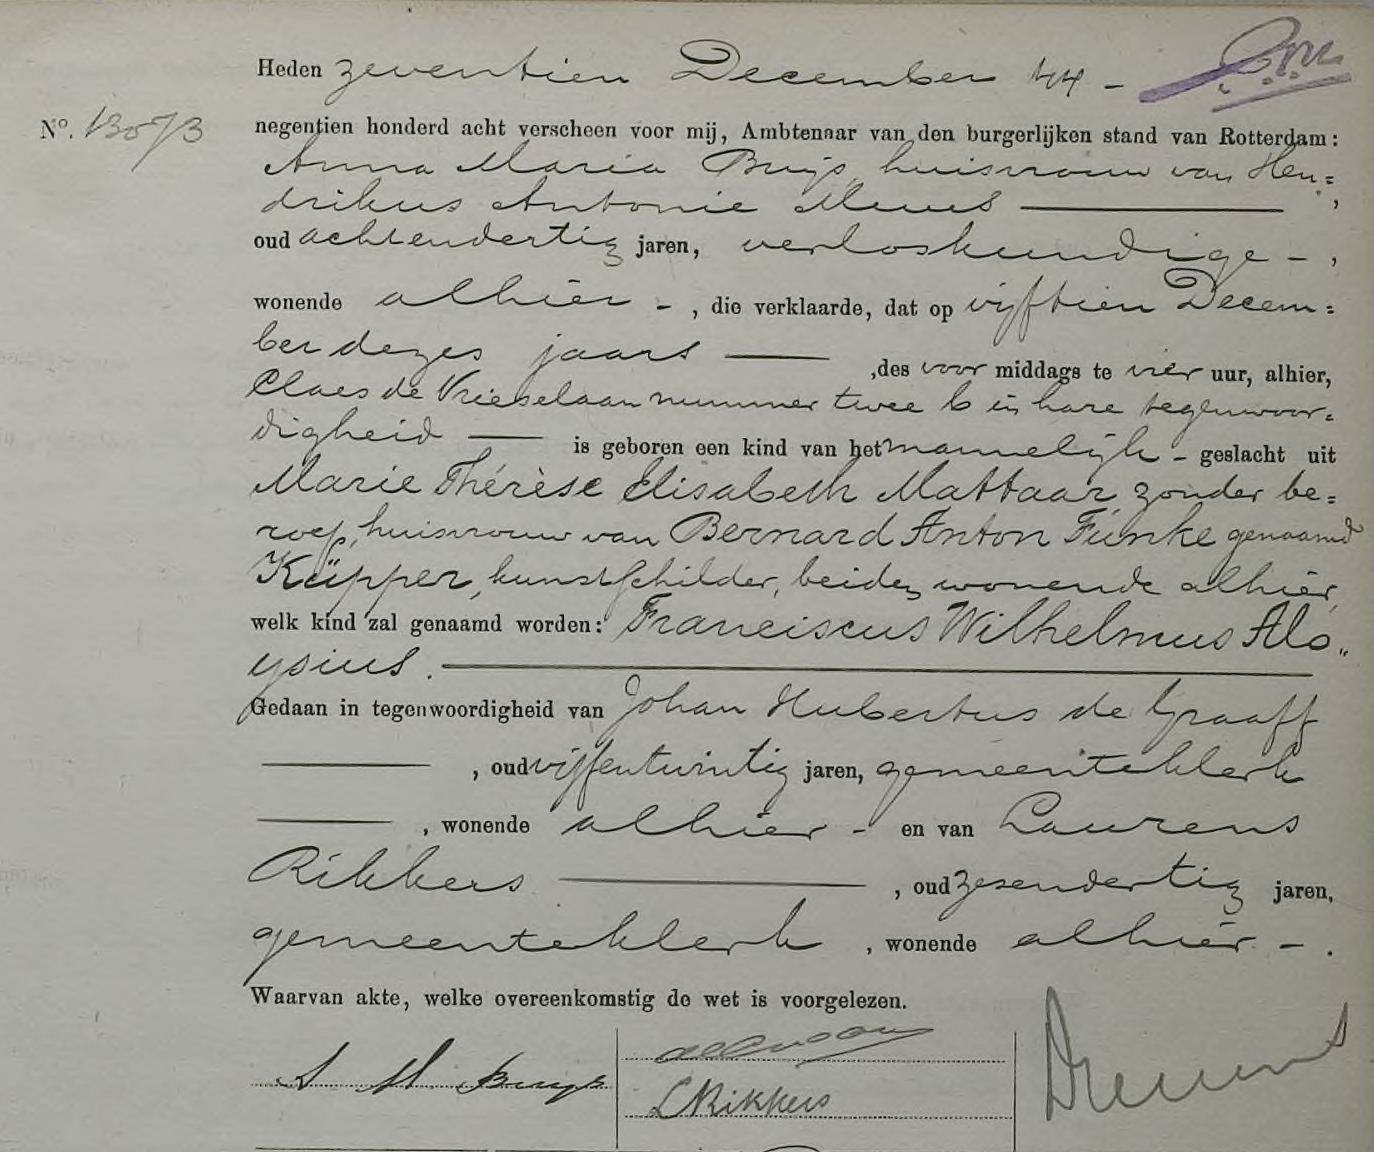 Heden zeventien December
No. 13073 negentien honderd acht verscheen voor mij, Ambtenaar van den burgerlijken stand van Rotterdam:
Anna Maria Buijs, huisvrouw van Hen=
drikus Antonie Meeuws ,
oud achtendertig jaren, verloskundige - ,
wonende alhier - , die verklaarde, dat op vijftien Decem=
ber dezes jaars ,des voor middags te vier uur, alhier,
Claes de Vrieselaan nummer twee b in hare tegenwoor=
digheid is geboren een kind van het mannelijk - geslacht uit
Marie Thérèse Elisabeth Mattaar zonder be=
roep, huisvrouw van Bernard Anton Funke genaamd
Küpper, kunstschilder, beiden wonende alhier,
welk kind zal genaamd worden: Franciscus Wilhelmus Alo„
ysius.
Gedaan in tegenwoordigheid van Johan Hubertus de Graaff
, oud vijfentwintig jaren, gemeenteklerk
, wonende alhier - en van Laurens
Rikkers , oud zesendertig jaren,
gemeenteklerk , wonende alhier - .
Waarvan akte, welke overeenkomstig de wet is voorgelezen.
A M Buijs
L Rikkers